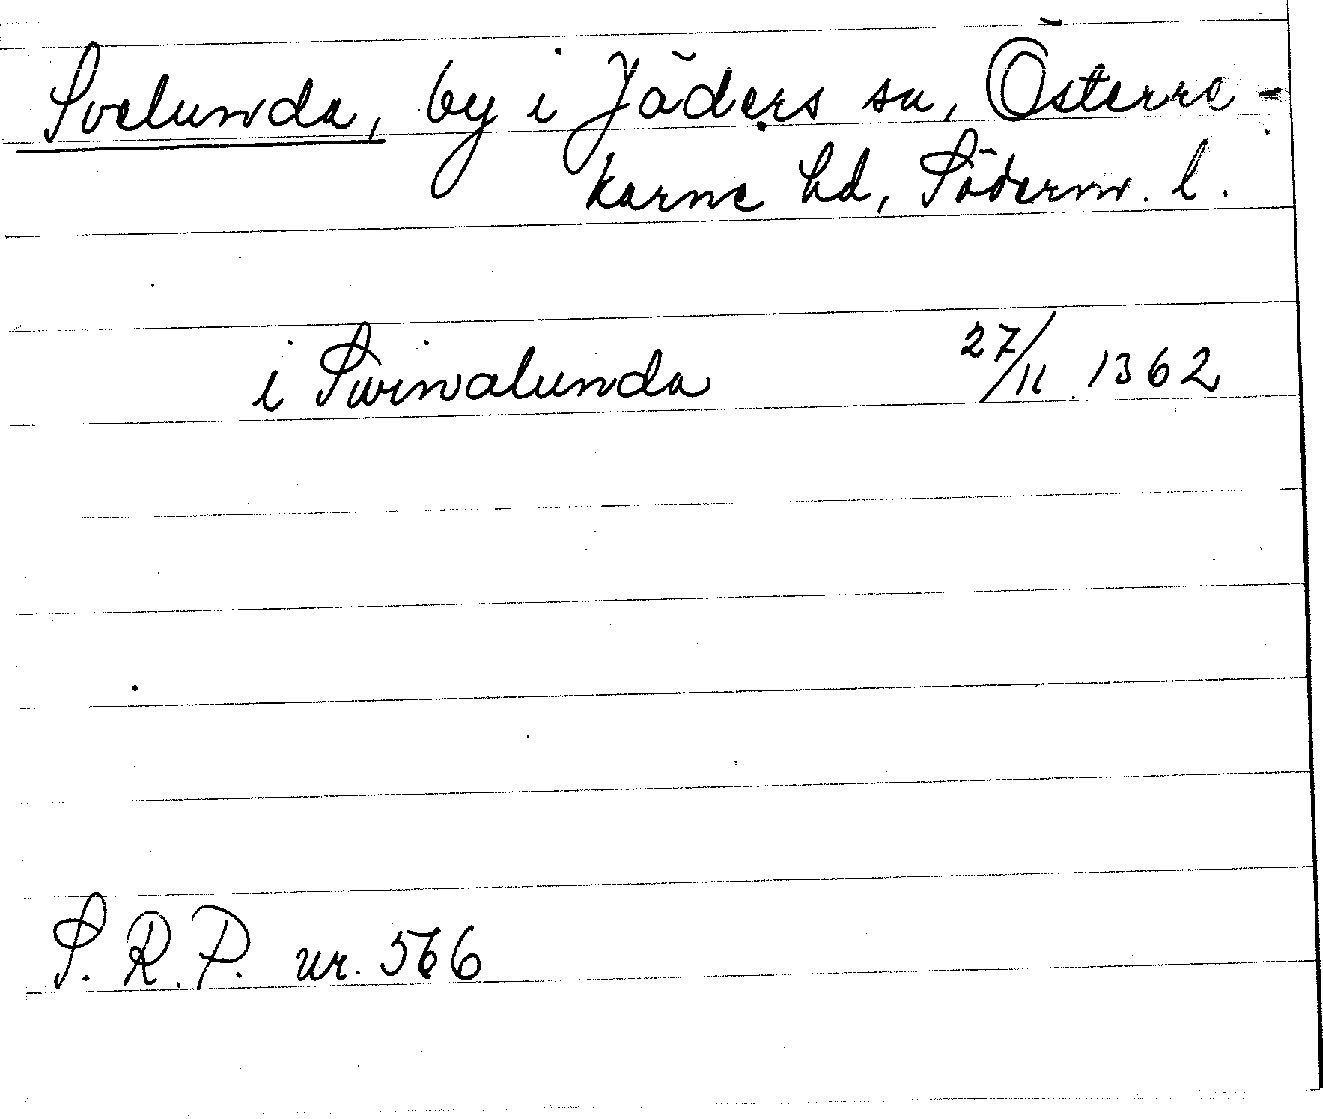 Svelunda, by i Jäders sn, Österre-
karne hd, Söderm. l.
i Swinalunda 27/11 1362
S.R.P. nr. 566